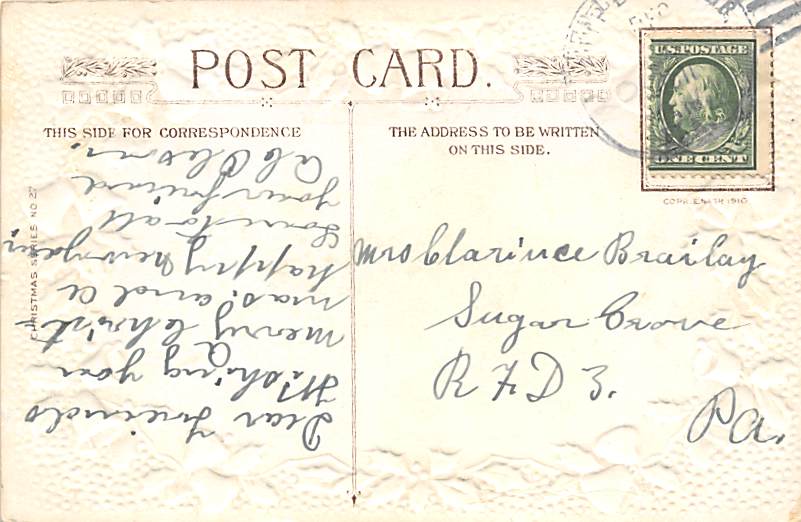 POST CARD.
THIS SIDE FOR CORRESPONDENCE
THE ADDRESS TO BE WRITTEN
ON THIS SIDE.
U.S. POSTAGE
ONE CENT
COPR. E. NASH 1910
CHRISTMAS SERIES NO 27
Dear Freinds
Wishing you
A
merry Christ
mas. and a
happy new year,
Love to all
your friend
Mrs Clarince Brailay
Sugar Grove
R F D 3.
Pa.